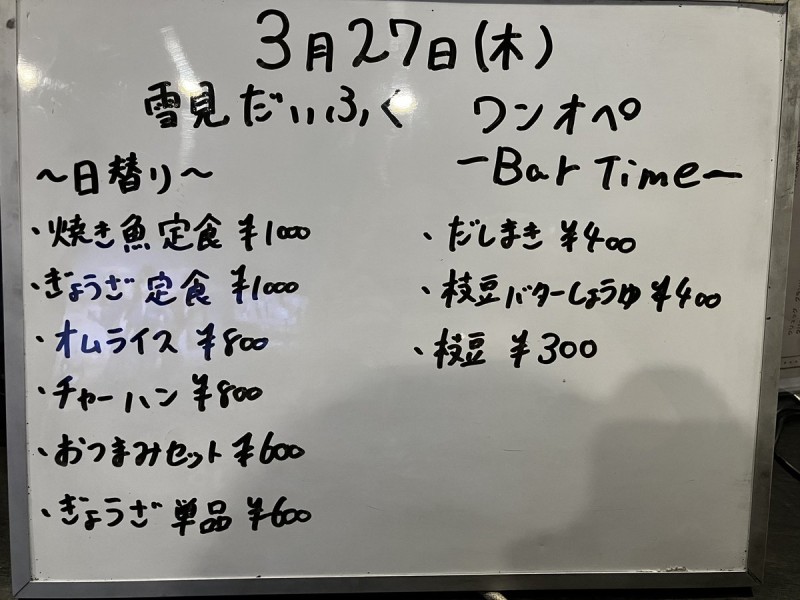 3月27日(木)
雪見だいふく ワンオペ
~日替り~
・焼き魚定食 ¥1000
・ぎょうざ定食 ¥1000
・オムライス ¥800
・チャーハン ¥800
・おつまみセット ¥600
・ぎょうざ単品 ¥600
ーBar Timeー
・だしまき ¥400
・枝豆バターしょうゆ ¥400
・枝豆 ¥300